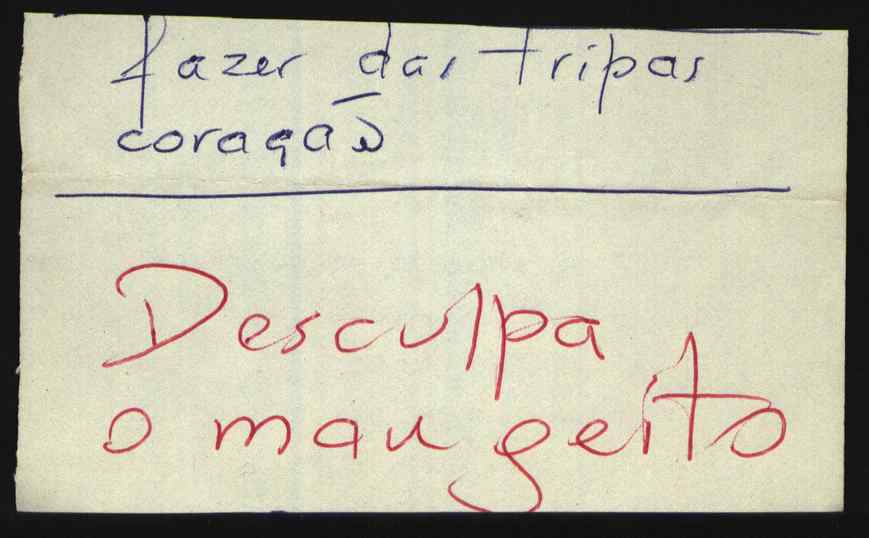 fazer das tripas
coração
Desculpa
o mau geito